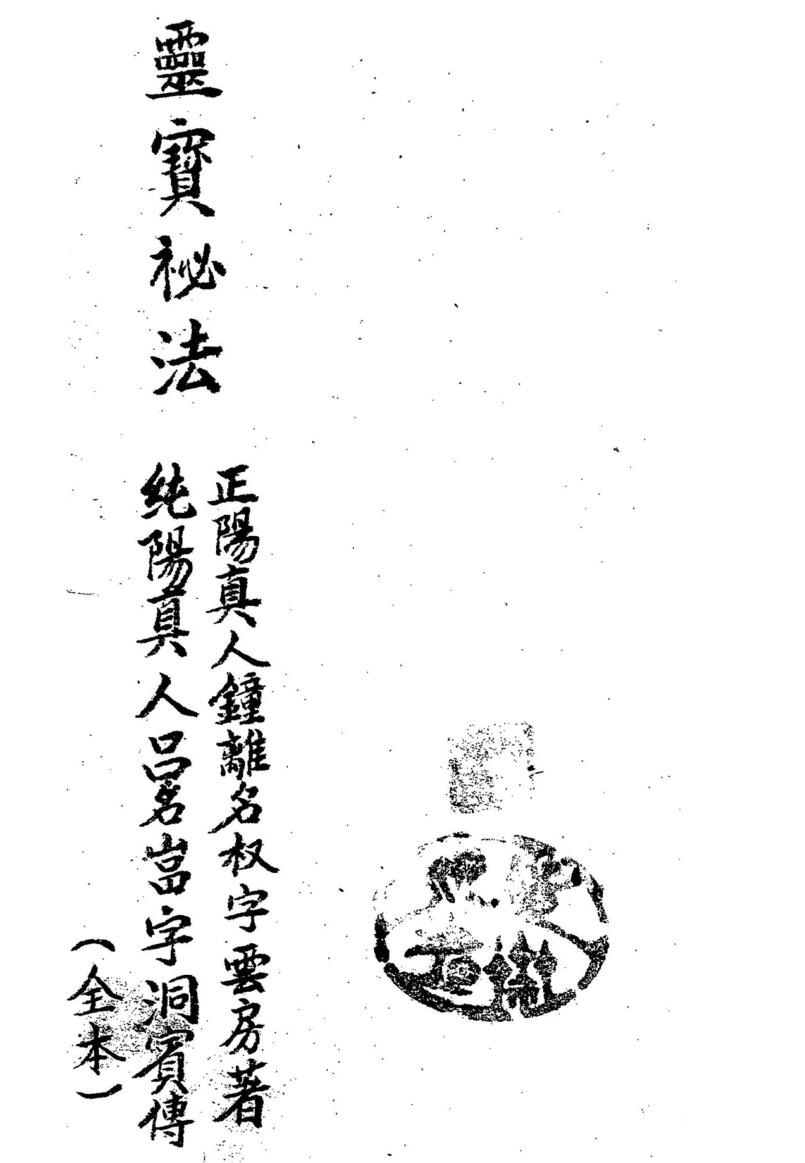 靈寶祕法
正陽真人鐘離名权字雲房著
純陽真人呂名喦字洞賓傳
（全本）